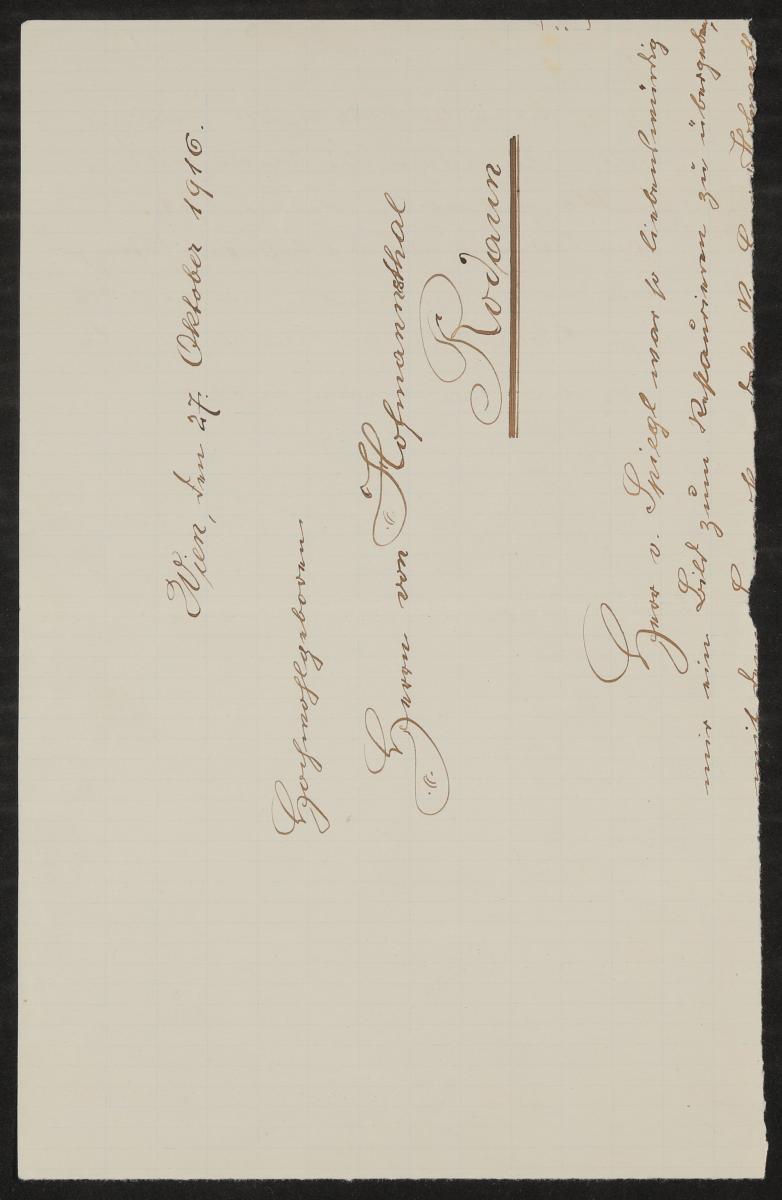 Wien, den 27. Oktober 1916.
Hochwohlgeboren
Herrn von Hofmannsthal
Rodaun
Herr v. Spiegl war so liebenswürdig
mir ein Bild zum Restaurieren zu übergeben,
mit dem